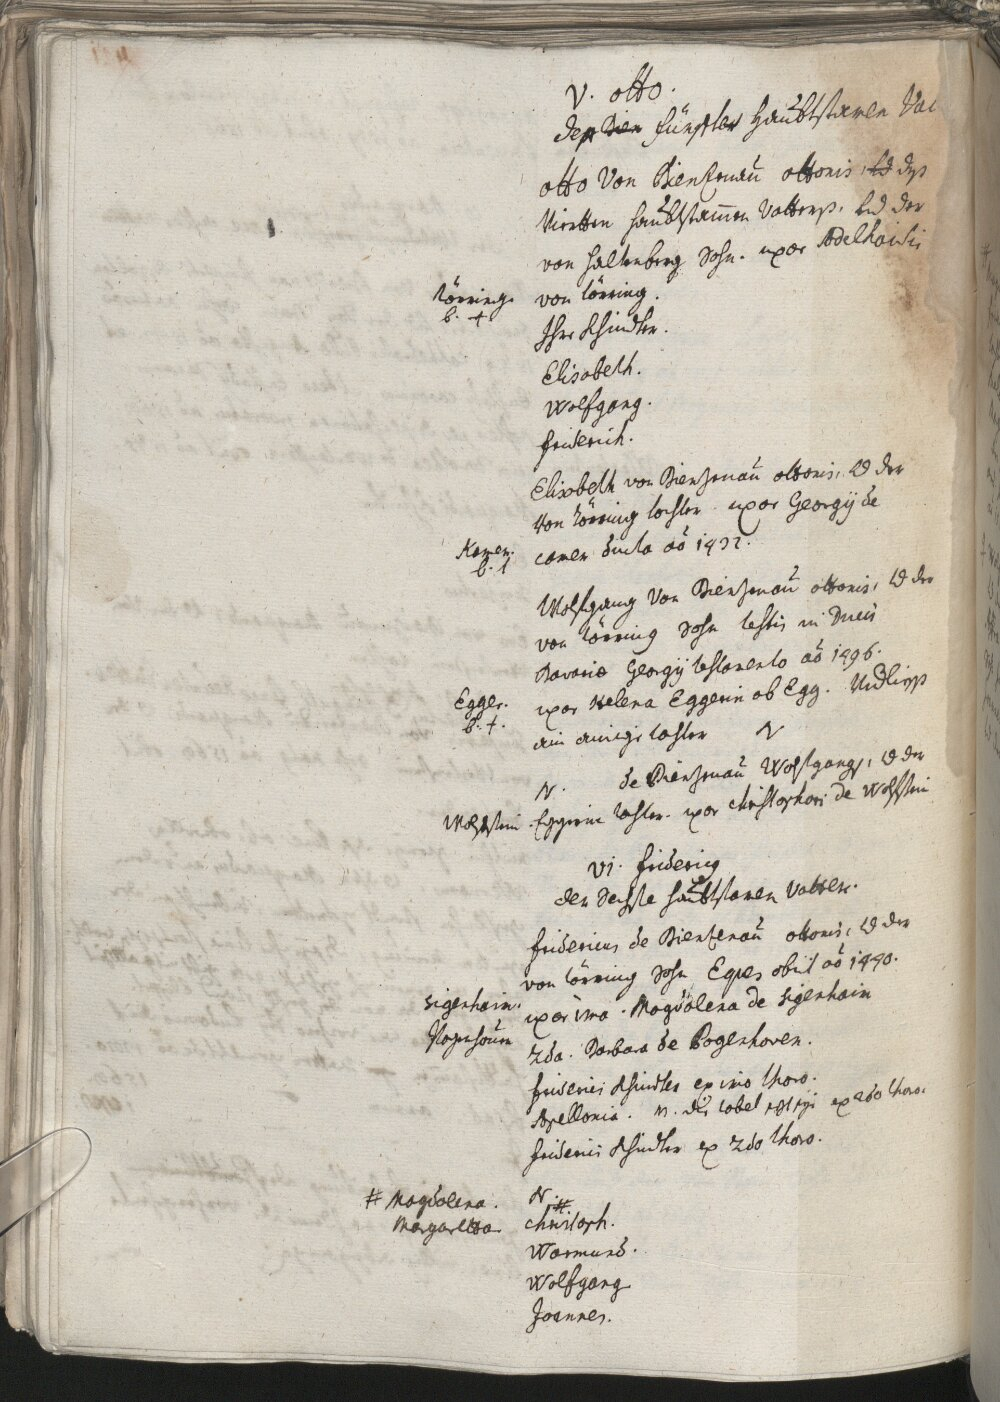 V. Otto.
der fünffter Haubtstamen Vat
Otto von Pienzenau Ottonis, deß
Viertten Haubtstammen Vatterß, und der
von Haltenberg Sohn. uxor Adelhaidis
Törring. von Törring.
b. +
Ihre Khindter.
Elisabeth.
Wolfgang.
Friderich.
Elisabeth von Pienzenau Ottonis, und der
von Törring tochter. uxor Georgij de
Kamer. camer ducta aō 1472.
b. 1
Wolfgang von Pienzenau Ottonis, und der
von Törring Sohn testis in Ducis
Bavariæ Georgij testamento aō 1496.
Egger. uxor Helena Eggerin ob Egg. Verließ
b. +. ain ainige tochter N
N. de Pienzenau Wolfgangs, und der
Wolfstein. Eggerin tochter. uxor Christophori de Wolfstein
VI. Friderich
der Sechste Haubtstamen Vatter.
Fridericus de Pienzenau Ottonis, und der
von Törring Sohn Eques obiit aō 1490.
Sigenhaim. uxor 1ma. Magdalena de Sigenhaim
2da. Barbara de Pogenhoven.
Friderici Khindter ex 1mo thoro.
Apellonia. ex 2do thoro.
Friderici Khindter ex 2do thoro.
# Magdalena. N. #
Margaretha. Christoph.
Warmund.
Wolfgang
Joannes.